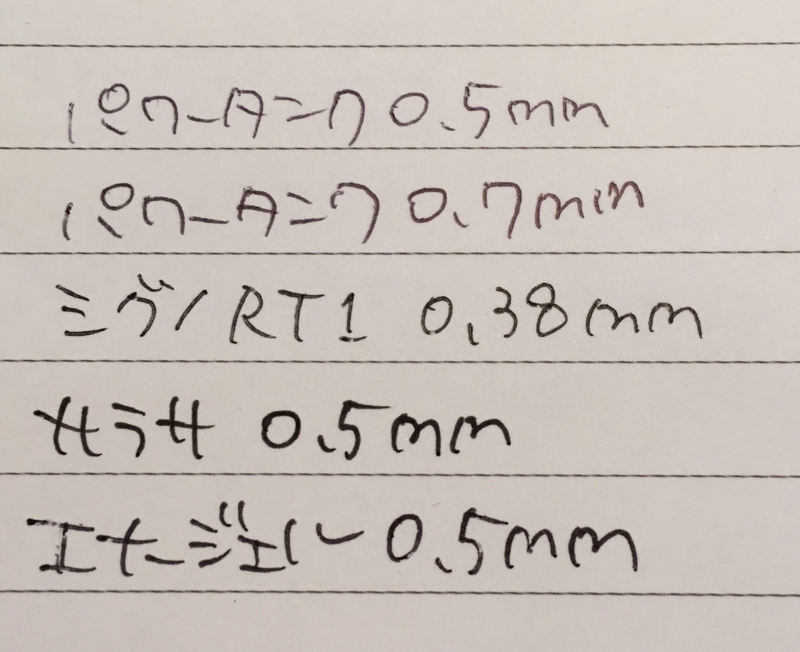 パワータンク 0.5mm
パワータンク 0.7mm
シグノ RT1 0.38mm
サラサ 0.5mm
エナージェル 0.5mm